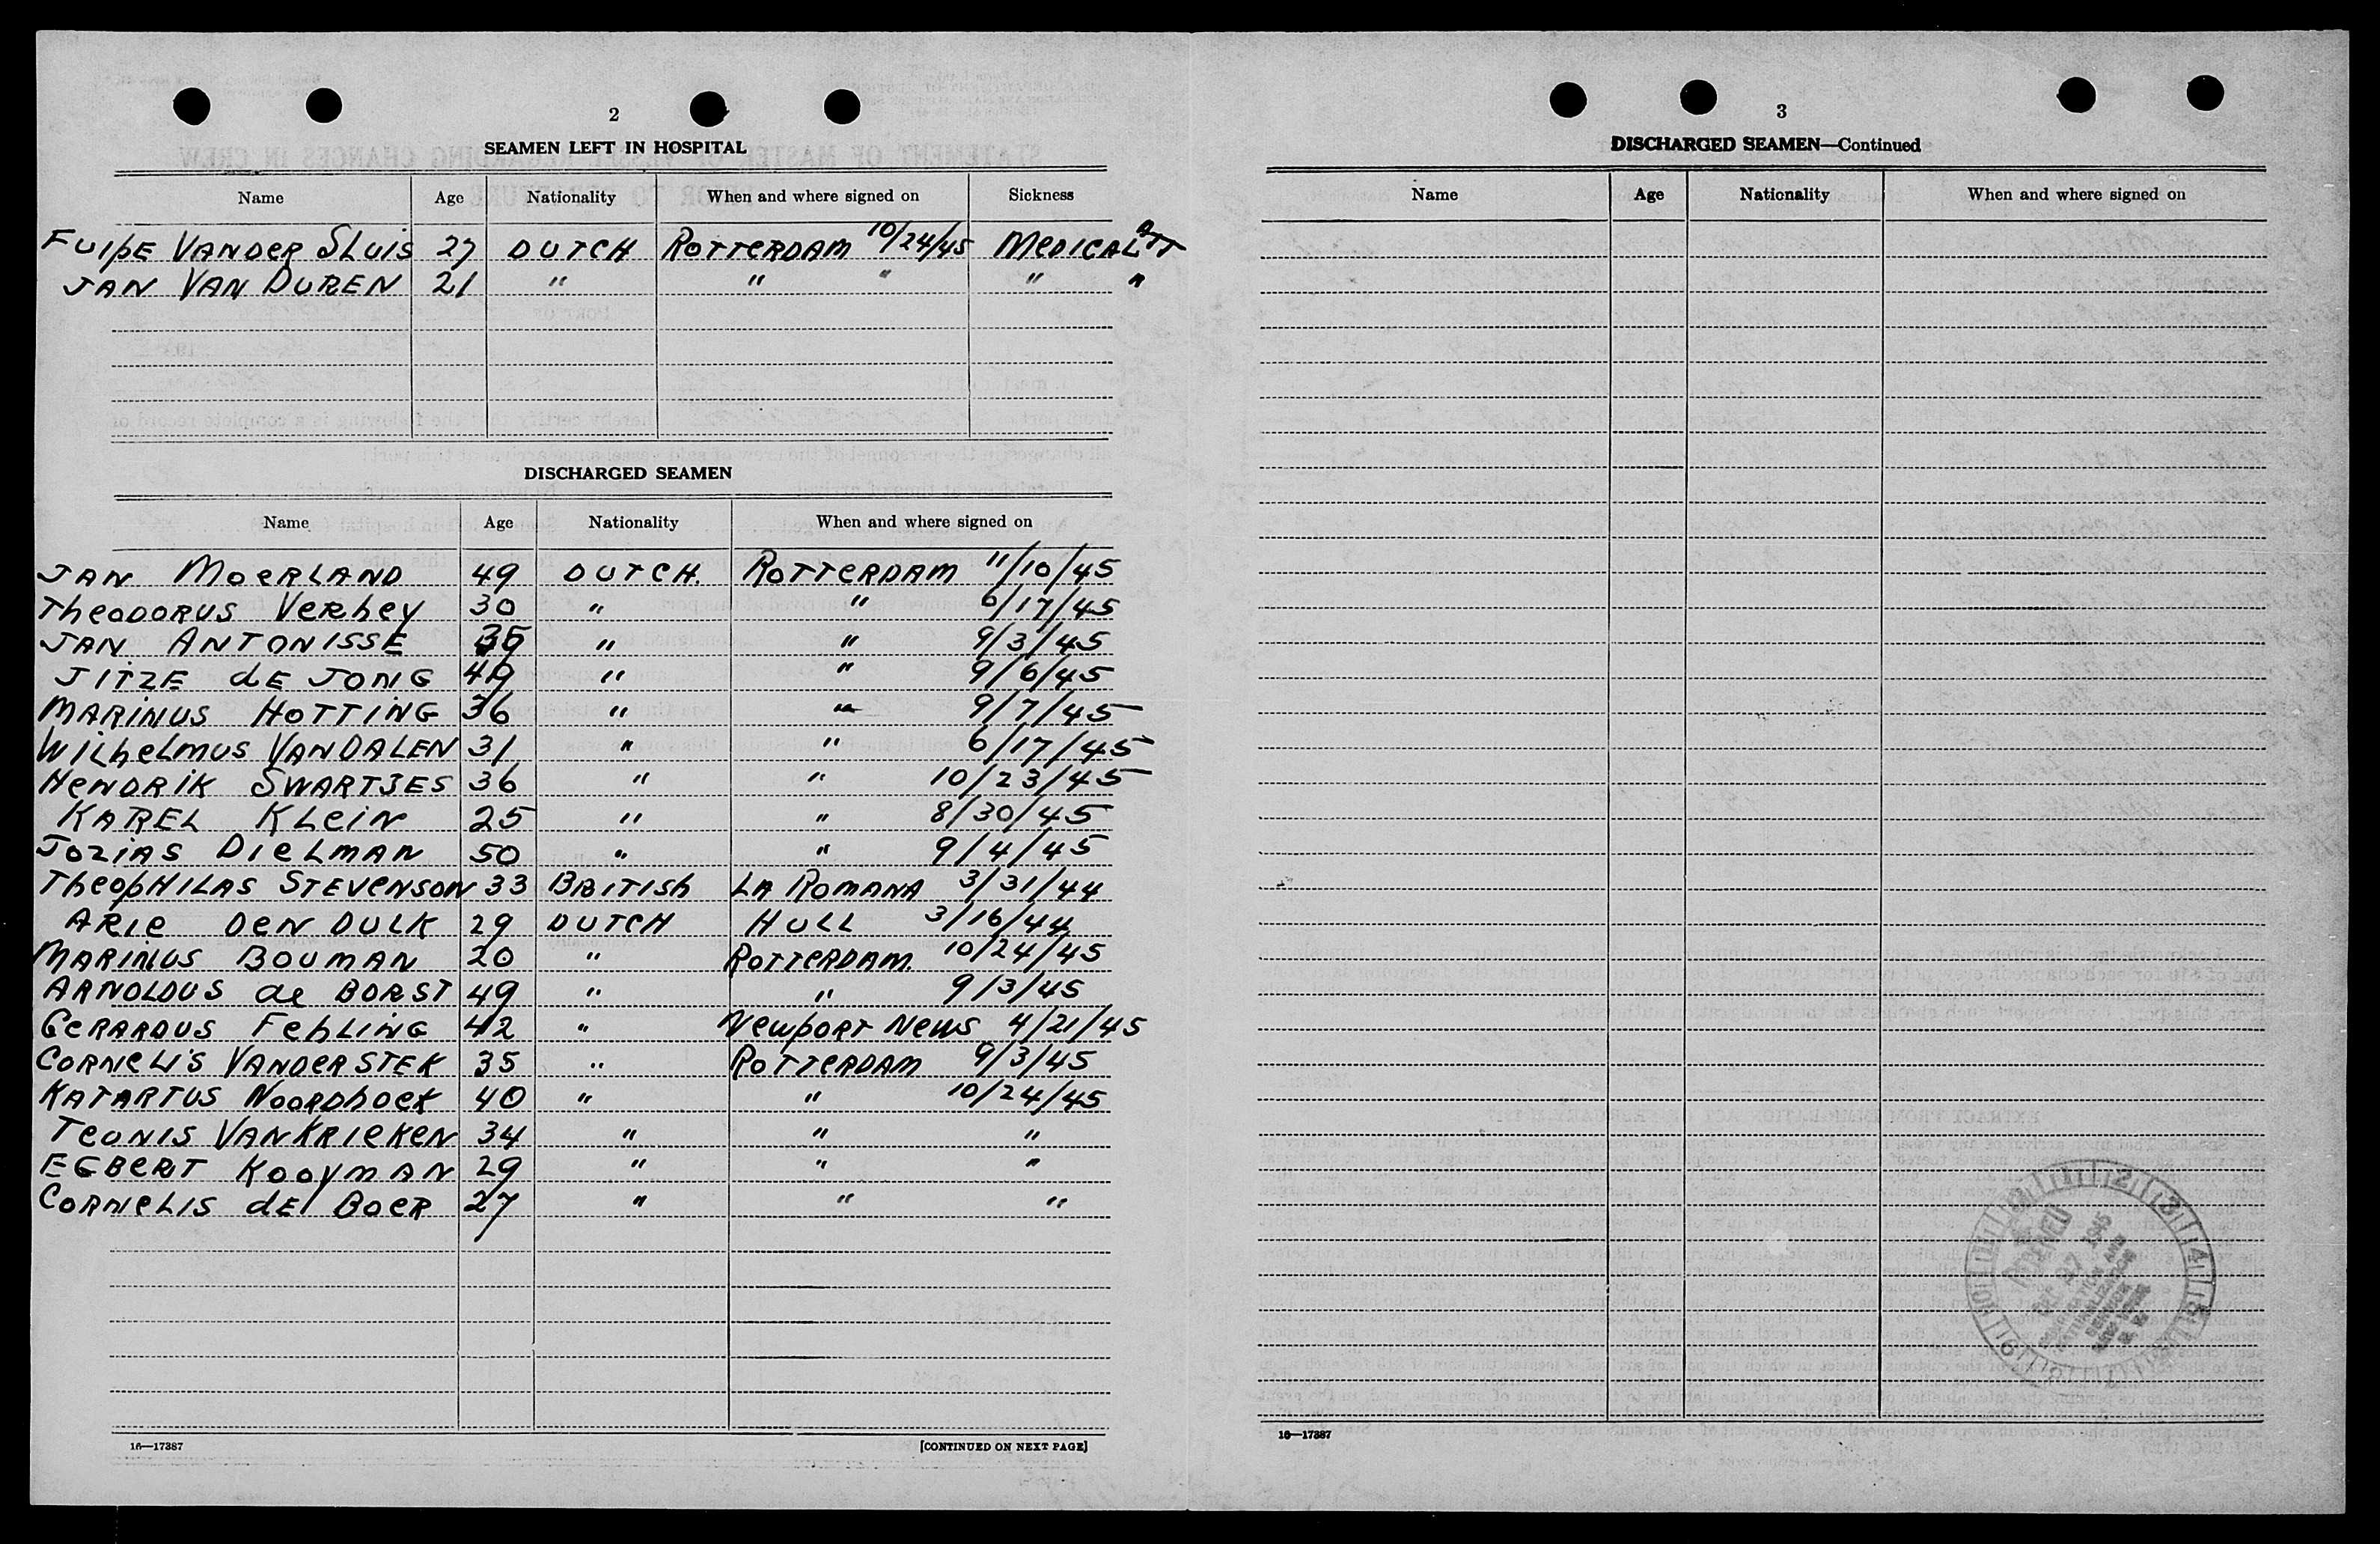 2
SEAMEN LEFT IN HOSPITAL
Name Age Nationality When and where signed on Sickness
FUIPE VANDER SLUIS 27 DUTCH ROTTERDAM 10/24/45 MEDICAL ATT
JAN VAN DUREN 21 " " " " "
DISCHARGED SEAMEN
Name Age Nationality When and where signed on
JAN MOERLAND 49 DUTCH. ROTTERDAM 11/10/45
THEODORUS VERHEY 30 " " 6/17/45
JAN ANTONISSE " " 9/3/45
JITZE dE JONG 49 " " 9/6/45
MARINUS HOTTING 36 " " 9/7/45
WILHELMUS VANDALEN 31 " " 6/17/45
HENDRIK SWARTJES 36 " " 10/23/45
KAREL KLEIN 25 " " 8/30/45
JOZIAS DIELMAN 50 " " 9/4/45
THEOPHILAS STEVENSON 33 BRITISH LA ROMANA 3/31/44
ARIE DEN DULK 29 DUTCH HULL 3/16/44
MARINUS BOUMAN 20 " ROTTERDAM. 10/24/45
ARNOLDUS de BORST 49 " " 9/3/45
GERARDUS FEHLING 42 " NEWPORT NEWS 4/21/45
CORNELIS VANDERSTEK 35 " ROTTERDAM 9/3/45
KATARTUS NOORDHOEK 40 " " 10/24/45
TEUNIS VANKRIEKEN 34 " " "
EGBERT KOOYMAN 29 " " "
CORNELIS dE BOER 27 " " "
16—17387 [CONTINUED ON NEXT PAGE]
3
DISCHARGED SEAMEN—Continued
Name Age Nationality When and where signed on
DEC 27 1945
IMMIGRATION AND
NATURALIZATION
SERVICE
NEW YORK
N. Y.
16—17387